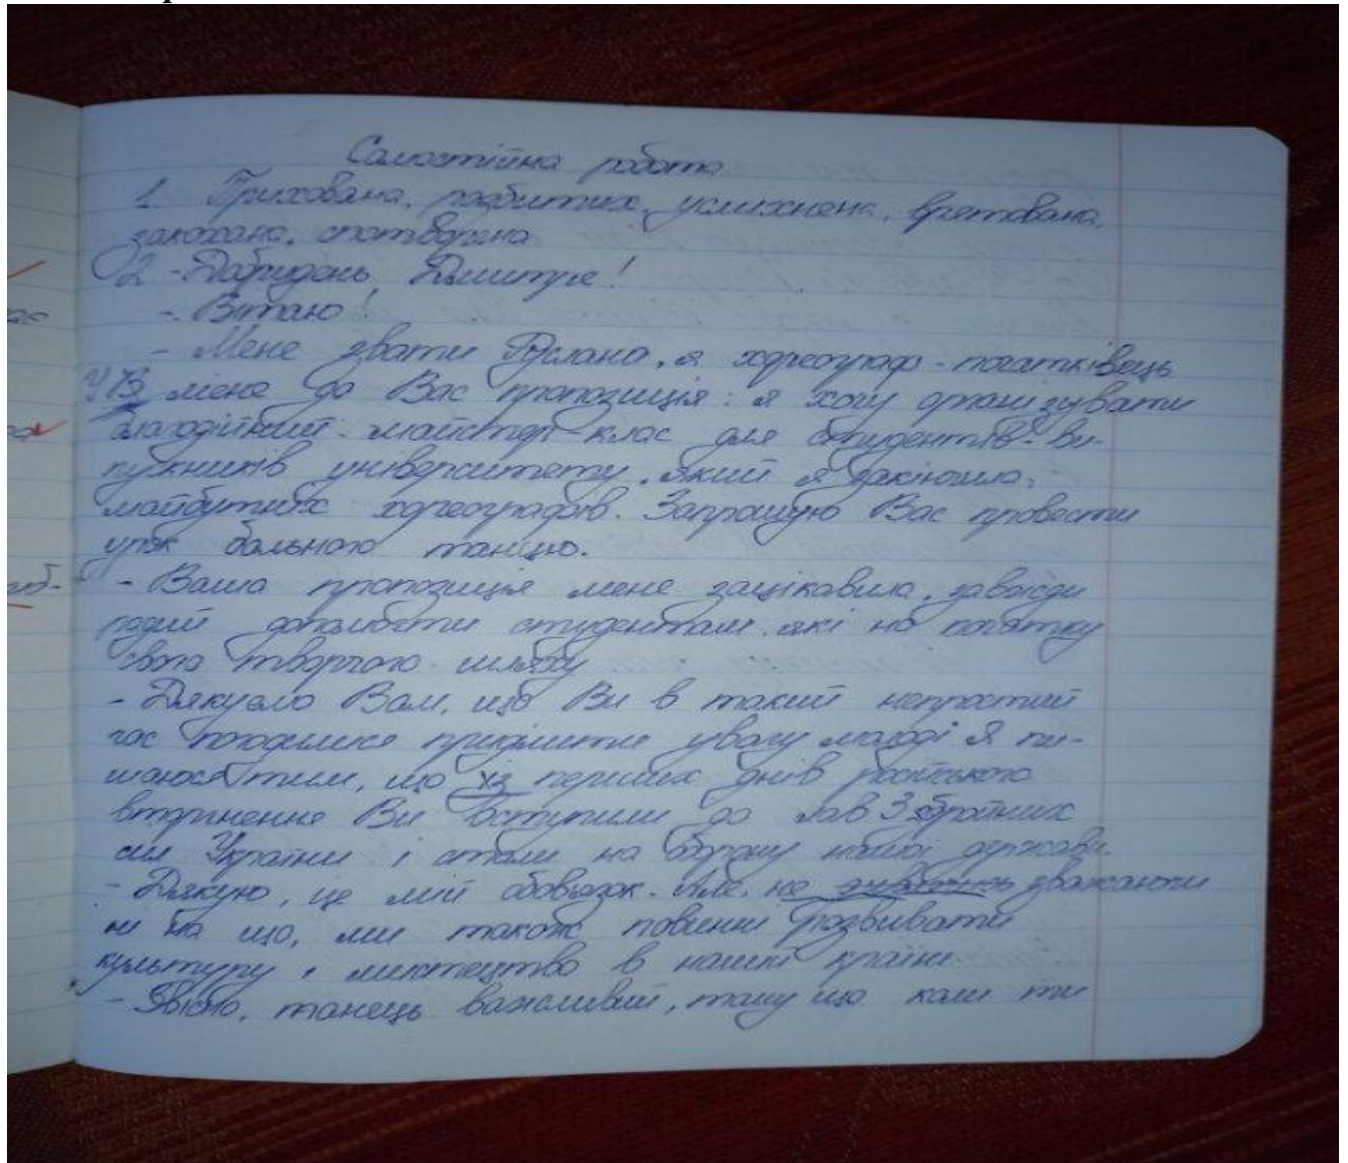 Самостійна робота
1. Прихована, розбитих, усміхнена, врятована,
закохана, спотворена
2 - Добридень, Дмитре!
- Вітаю!
- Мене звати Руслана, я хореограф-початківець
У В мене до Вас пропозиція: я хочу організувати
благодійний майстер-клас для студентів-ви-
пускників університету, який я закінчила:
майбутніх хореографів. Запрошую Вас провести
урок бального танцю.
- Ваша пропозиція мене зацікавила, завжди
радий допомогти студентам, які на початку
свого творчого шляху
- Дякуємо Вам, що Ви в такий непростий
час погодилися приділити увагу молоді. Я пи-
шаюся тим, що із перших днів російського
вторгнення Ви вступили до лав Збройних
сил України і стали на оборону нашої держави.
- Дякую, це мій обов'язок. Але, не зважаючи
ні на що, ми також повинні розвивати
культуру і мистецтво в нашій країні.
- Звісно, танець важливий, тому що коли ти